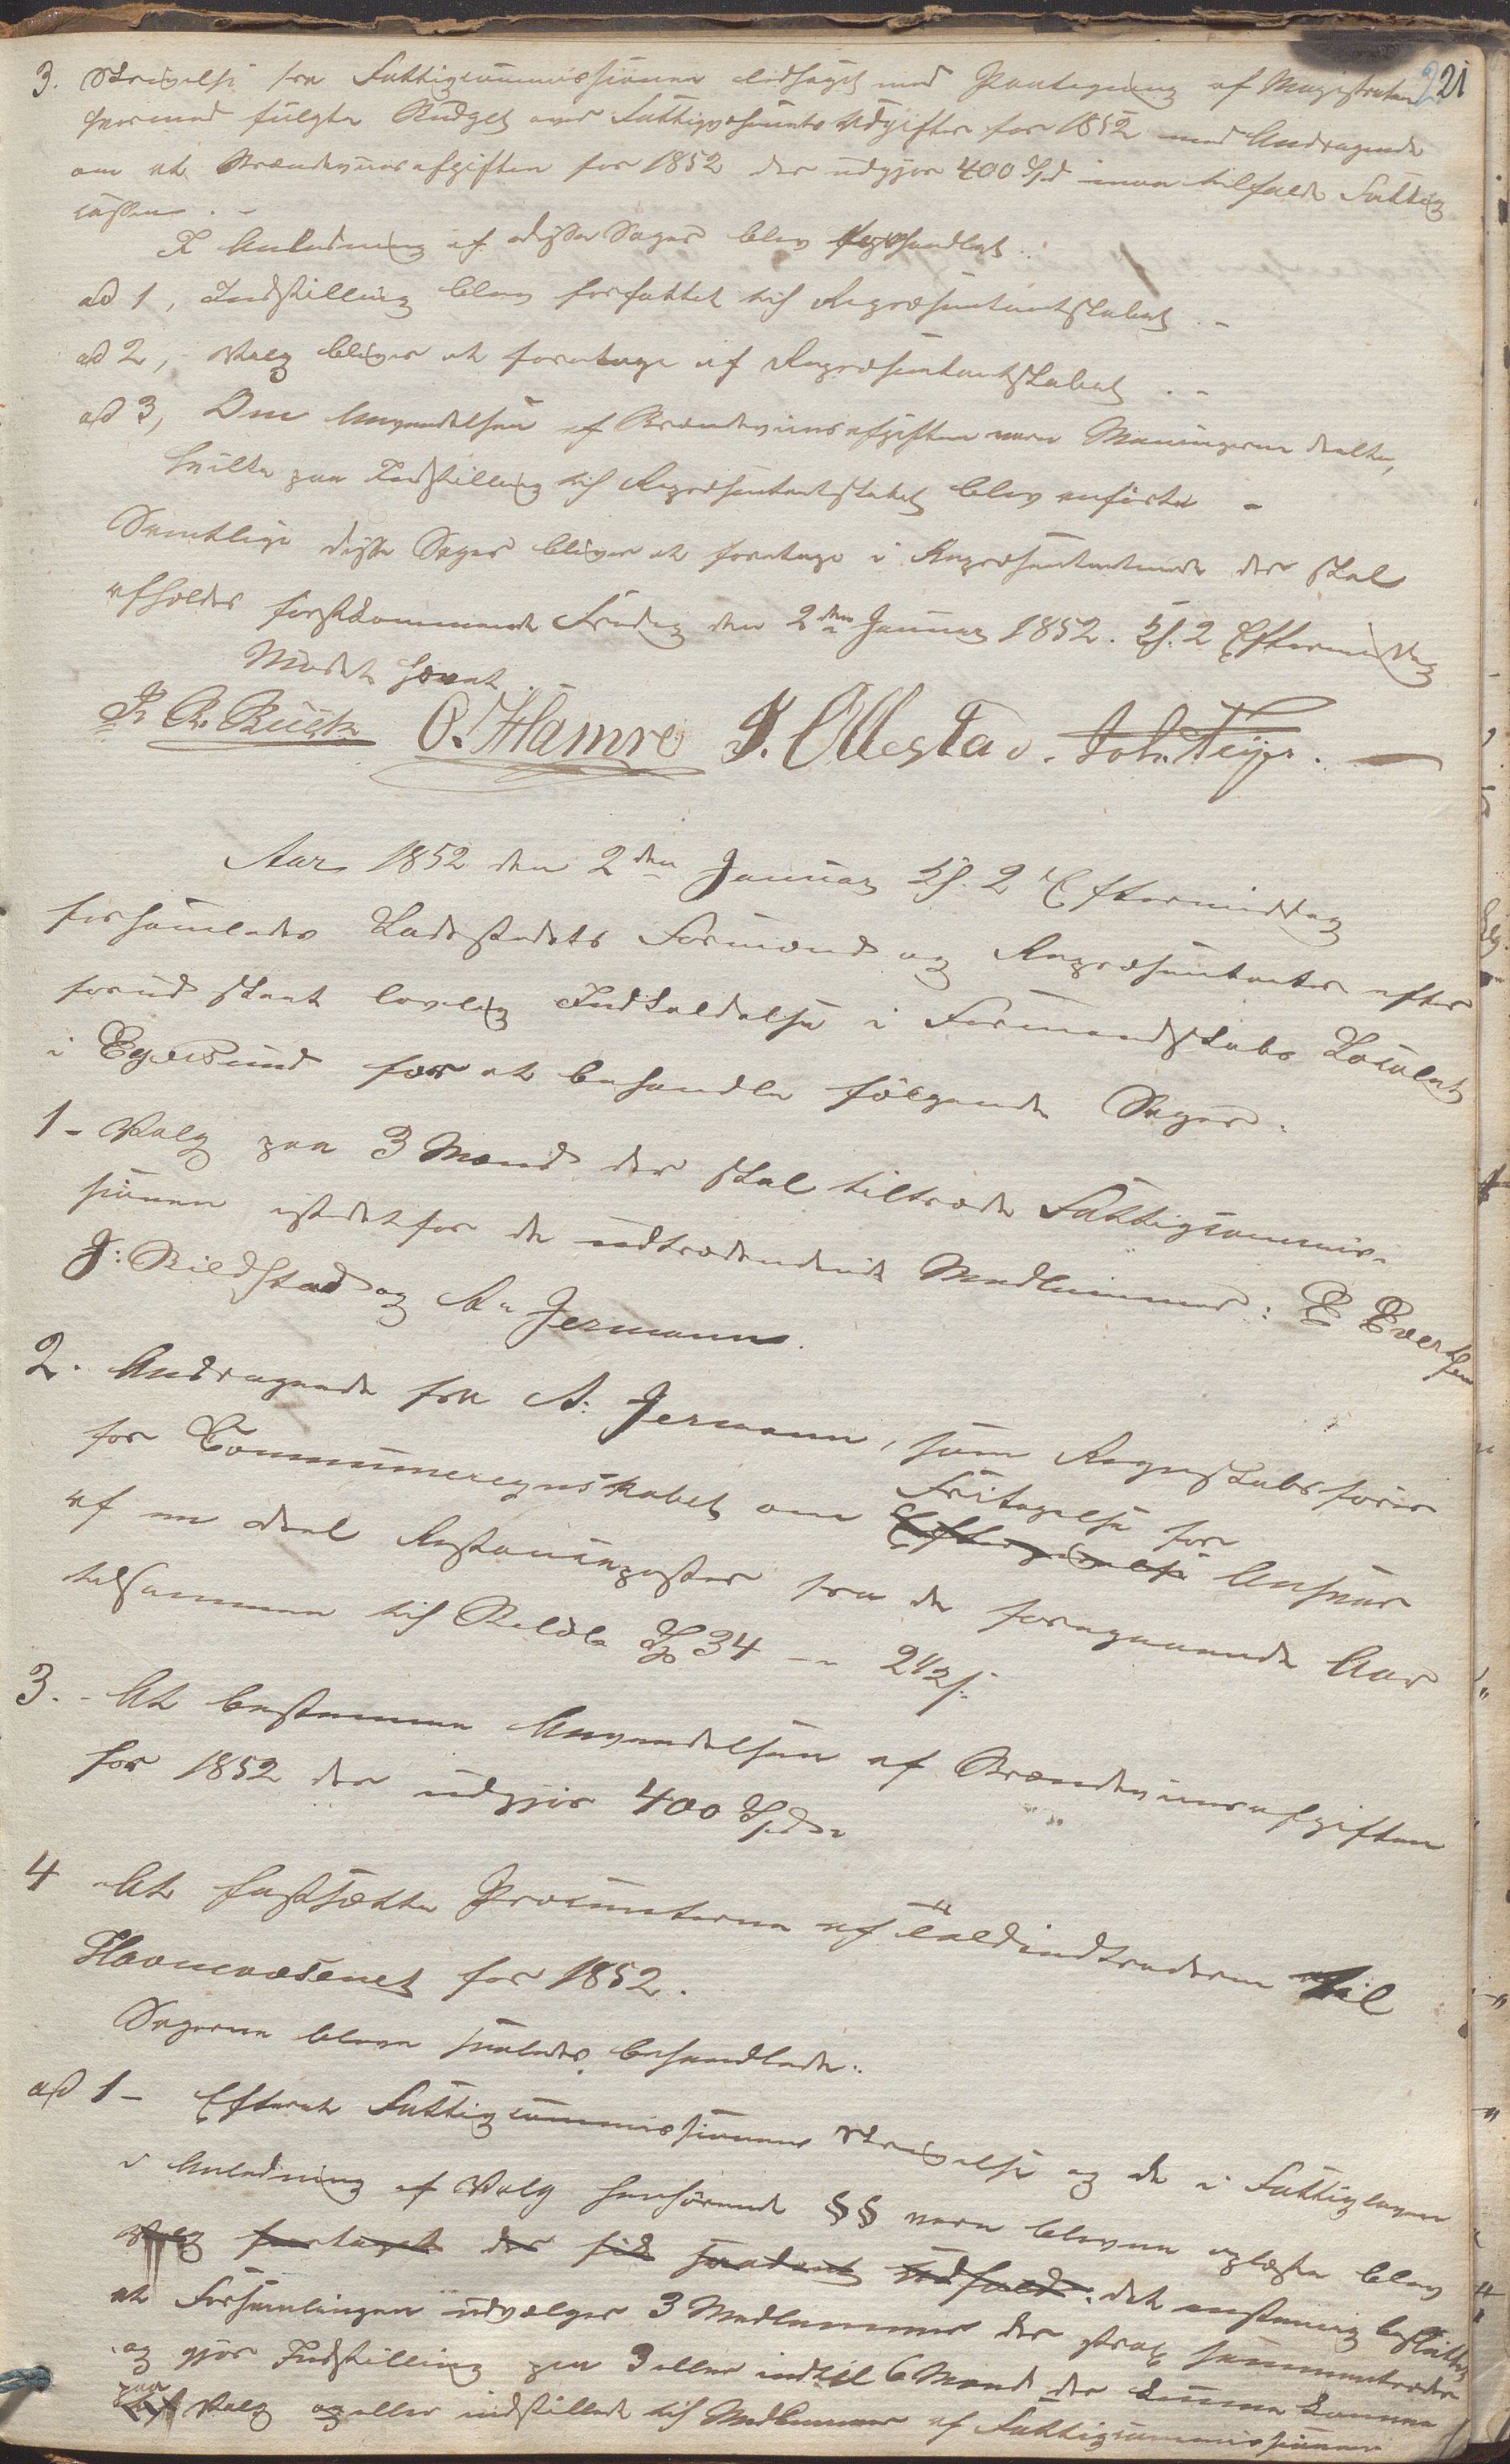 221
3. Skrivelse fra Fattigcommissionen ledsaget med Paategning af Magistraten
hvormed fulgte Budget over Fattigvæsenets Udgifter for 1852 med Andragende
om at Brændeviinsafgiften for 1852 der udgjør 400 Spd maa tilfalde Fattig
cassen. -
I Anledning af disse Sager blev forhandlet:
ad 1, Indstilling blev forfattet til Repræsentantskabet. -
ad 2, Valg bliver at foretage af Repræsentantskabet. -
ad 3, Om Anvendelsen af Brændeviinsafgiften vare Meningerne deelte,
hvilke paa Indstilling til Repræsentantskabet blev anførte -
Samtlige disse Sager bliver at foretage i Repræsentantmøde der skal
afholdes førstkommende Fredag den 2den Januar 1852. Kl. 2 Eftermiddag
Mødet hævet. -
O. Hamre J. Ollestad. Joh. Feyer. -
Aar 1852 den 2den Januar Kl. 2 Eftermiddag
forsamledes Ladestedets Formænd og Repræsentanter efter
forud skeet lovlig Indkaldelse i Formandskabs Localet
i Egersund for at behandle følgende Sager:
1 - Valg paa 3 Mænd der skal tiltræde Fattigcommis-
sionen istedetfor de udtrædende Medlemmer: E Evertsen
J: Bildstad og A. Jermann.
2. Andragende fra A. Jermann, som Regnskabsfører
for Communeregnskabet om Fritagelse for Ansvar
af en deel Restanceposter fra de foregaaende Aar
tilsammen til Beløb Spd 34 - " 21/2 s.
3. - At bestemme Anvendelsen af Brændeviinsafgiften
for 1852 der udgjør 400 Spd.
4 At fastsætte Procenterne af Toldindtraderne til
Havnevæsenet for 1852.
Sagerne bleve saaledes behandlede:
ad 1 - Efterat Fattigcommissionens Skrivelse og de i Fattigloven
i Anledning af Valg henhørende §§ vare blevne oplæste blev
Valg foretaget der fik saadant Udfald: det eenstemmig besluttet
at Forsamlingen udvælger 3 Medlemmer der strax sammentræder
og gjør Indstilling paa 3 eller indtil 6 Mænd der kunne komme
paa Valg og eller indstillede til Medlemmer af Fattigcommissionen